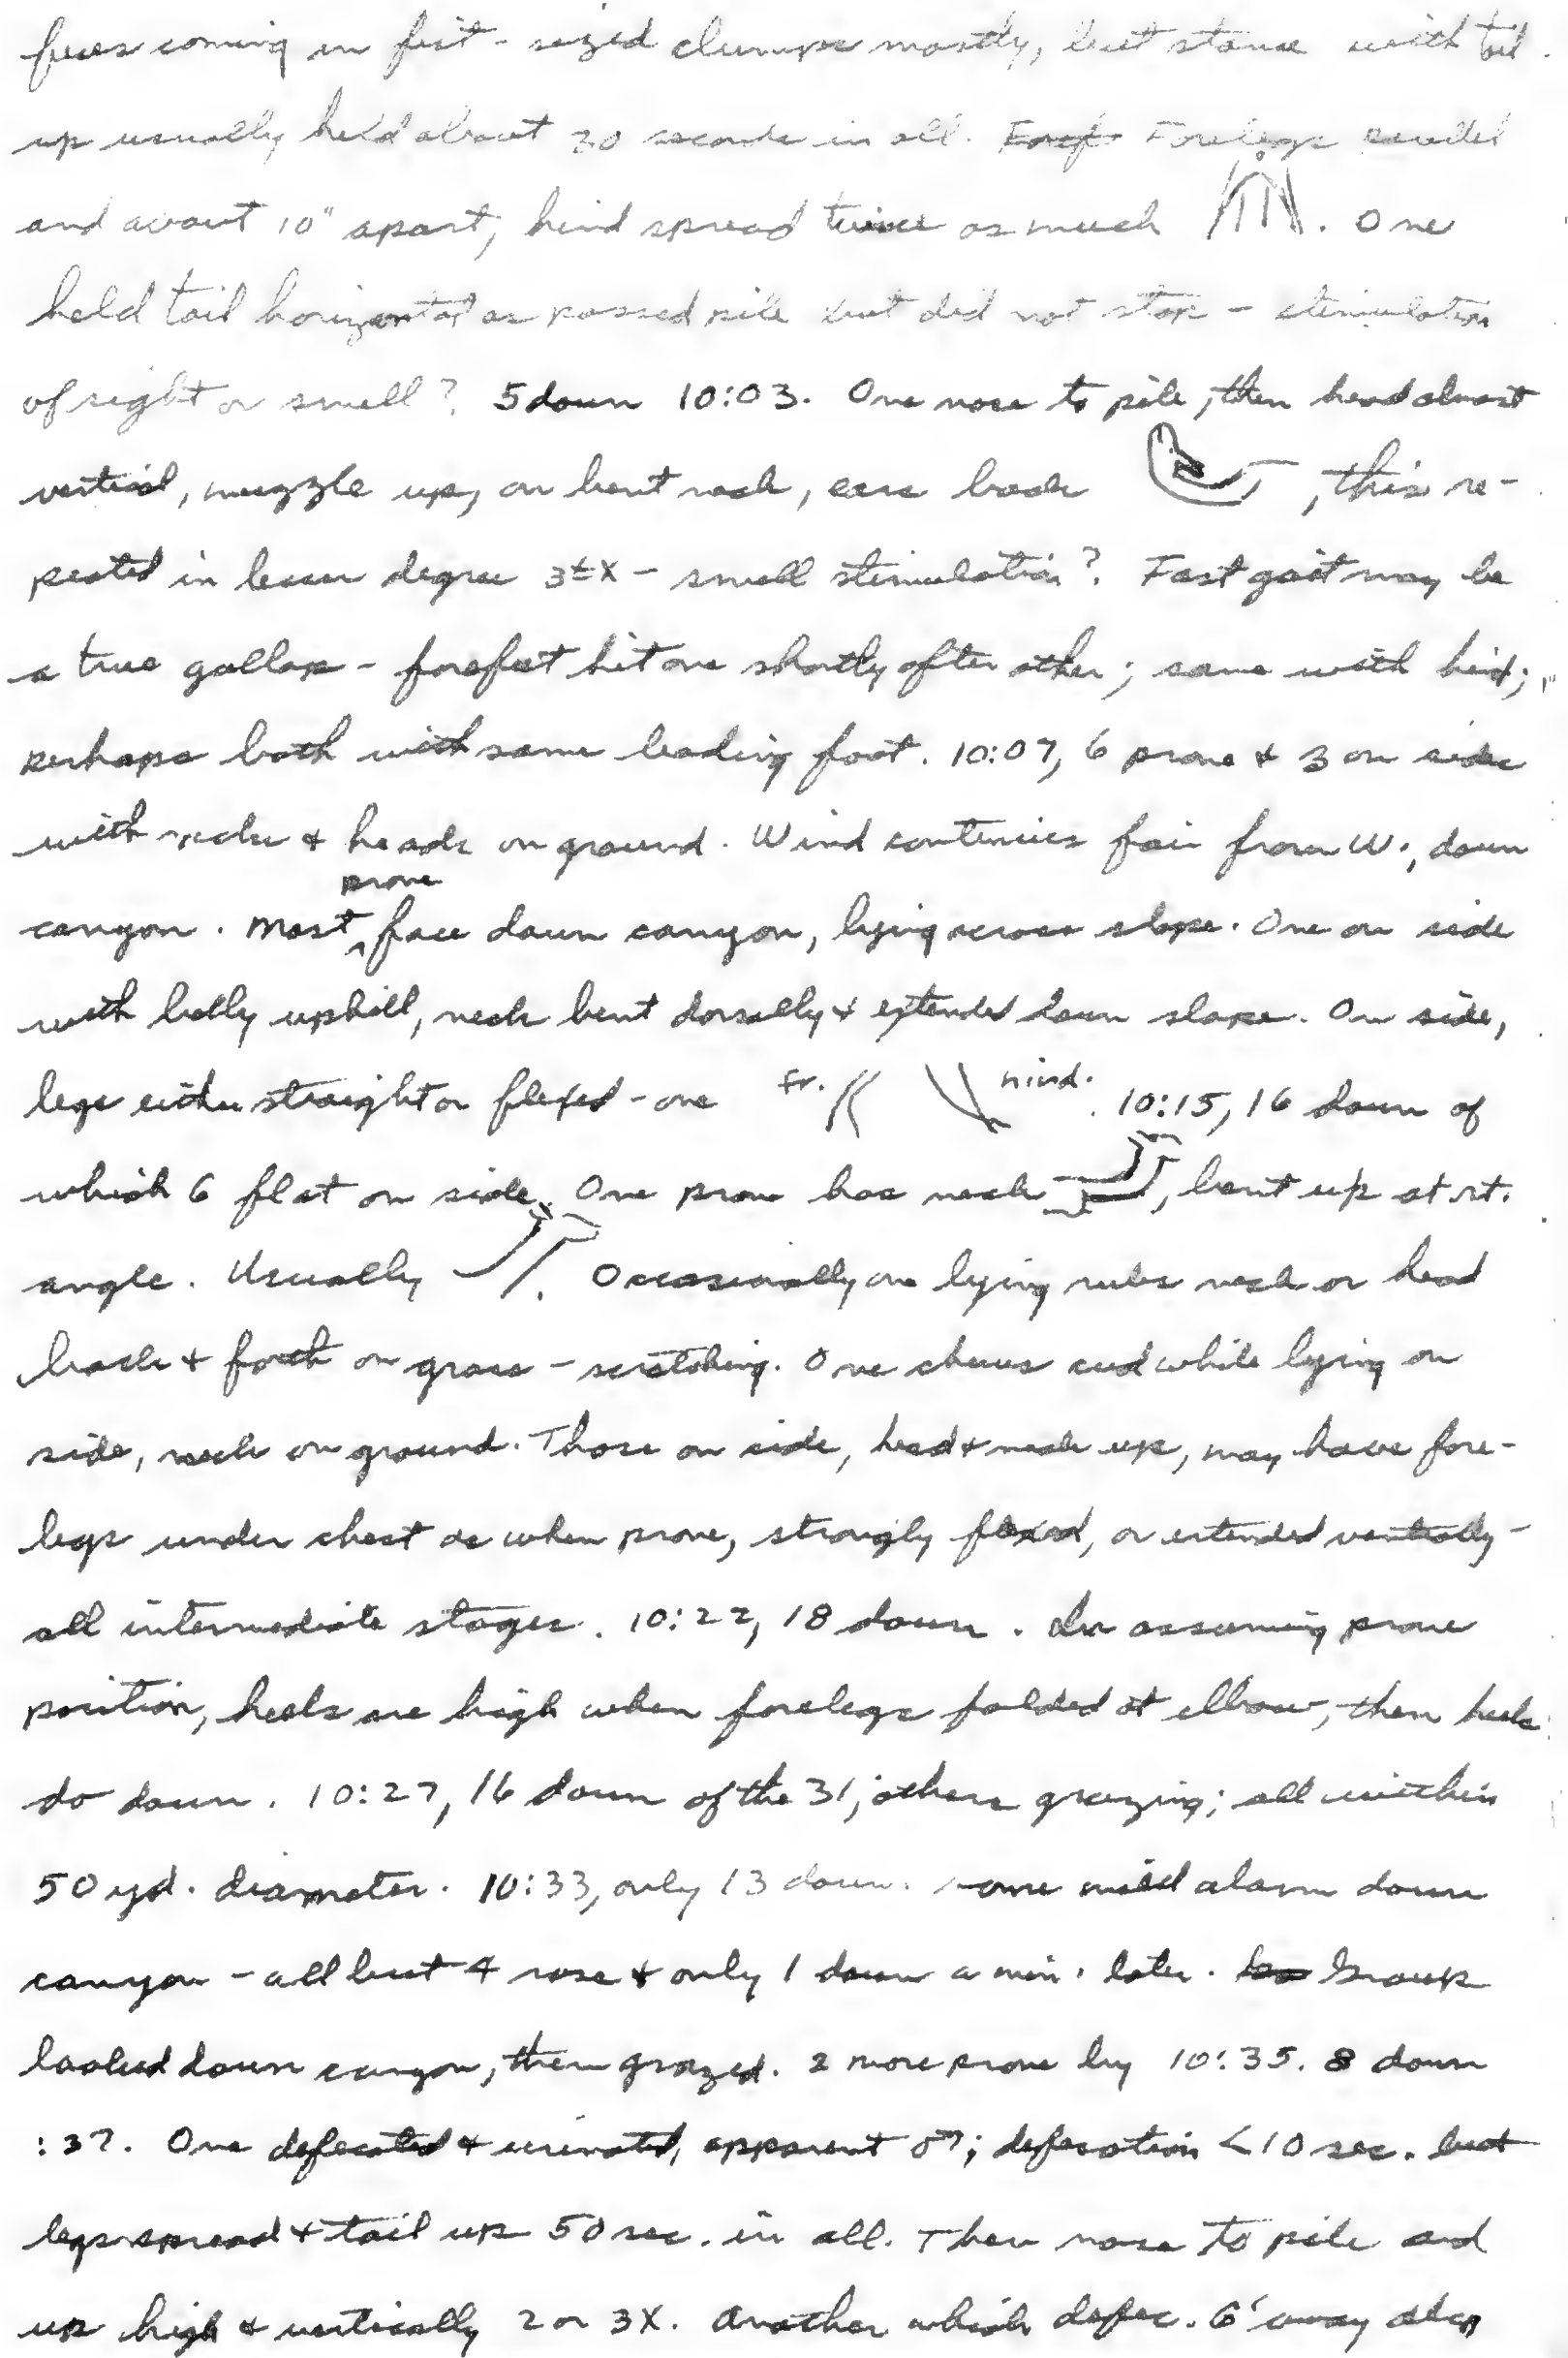 feces coming in fist-sized clumps mostly, but stance with tail
up usually held about 30 seconds in all. Forelegs parallel
and about 10" apart, hind spread twice as much. One
held tail horizontal as passed pile but did not stop - stimulation
of sight or smell? 5 down 10:03. One nose to pile, then head almost
vertical, muzzle up, on bent neck, ears back, this re-
peated in lesser degree 3±X - smell stimulation? Fast gait may be
a true gallop - forefeet hit one shortly after other; same with hind;
perhaps both with same leading foot. 10:07, 6 prone & 3 on sides
with necks & heads on ground. Wind continues fair from W., down
prone
canyon. Most ^ face down canyon, lying across slope. One on side
with belly uphill, neck bent dorsally & extended down slope. On side,
legs either straight or flexed - one fr. hind. 10:15, 16 down of
which 6 flat on side. One prone has neck, bent up at rt.
angle. Usually. Occasionally one lying rubs neck or head
back & forth on grass - scratching. One chews cud while lying on
side, neck on ground. Those on side, head & neck up, may have fore-
legs under chest as when prone, strongly flexed, or extended ventrally -
all intermediate stages. 10:22, 18 down. In assuming prone
position, heels are high when forelegs folded at elbow, then heels
do down. 10:27, 16 down of the 31, others grazing; all within
50 yd. diameter. 10:33, only 13 down. Some mild alarm down
canyon - all but 4 rose & only 1 down a min. later. Group
looked down canyon, then grazed. 2 more prone by 10:35. 8 down
:37. One defecated & urinated, apparent ♂; defecation <10 sec. but
legs spread & tail up 50 sec. in all. Then nose to pile and
up high & vertically 2 or 3X. Another which defec. 6' away also